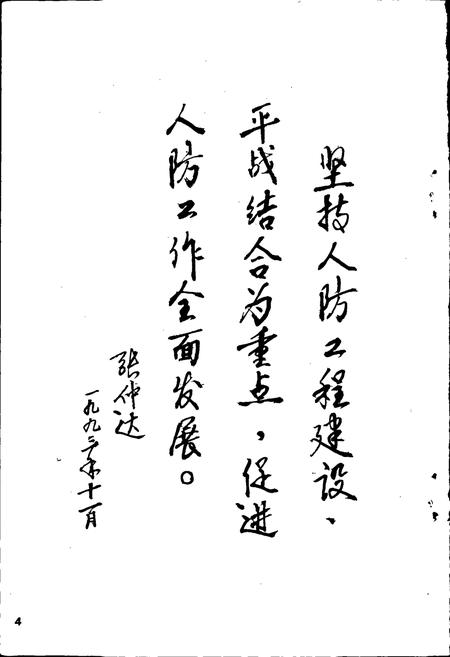 坚持人防工程建设、
平战结合为重点，促进
人防工作全面发展。
张仲达
一九九三年十一月
4